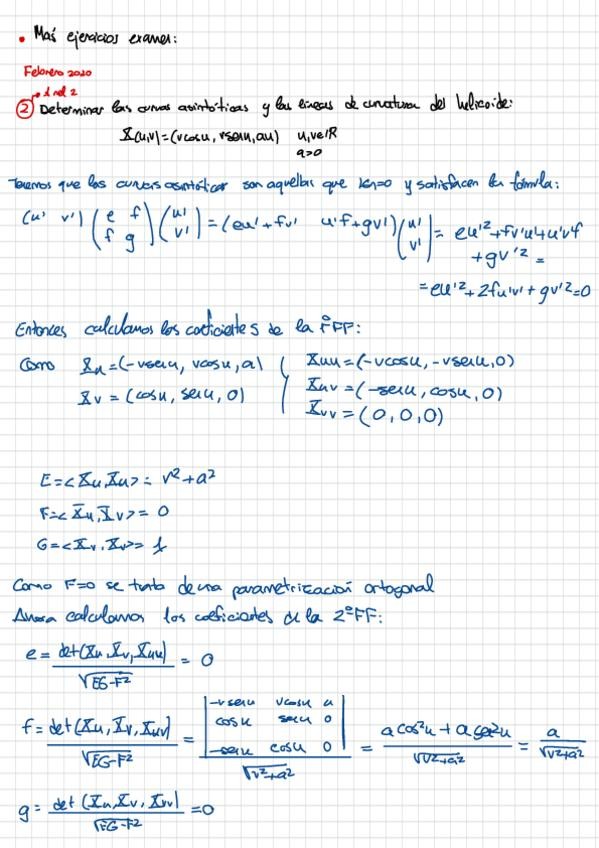 • Más ejercicios examen:
Febrero 2020
1 rel 2
② Determinar las curvas asintóticas y las líneas de curvatura del helicoide:
X(u,v)=(vcosu, vsenu, au) u,v∈ℝ
a>0
Tenemos que las curvas asintóticas son aquellas que kn=0 y satisfacen la fórmula:
(u' v') (e f / f g) (u' / v') = (eu'+fv' u'f+gv') (u' / v') = eu'²+fv'u'+u'v'f
+gv'² =
= eu'²+2fu'v'+gv'²=0
Entonces calculamos los coeficientes de la 1ªFF:
Como Xu=(-vsenu, vcosu, a) Xuu=(-vcosu, -vsenu, 0)
Xv=(cosu, senu, 0) Xuv=(-senu, cosu, 0)
Xvv=(0,0,0)
E=<Xu,Xu>= v²+a²
F=<Xu,Xv>= 0
G=<Xv,Xv>= 1
Como F=0 se trata de una parametrización ortogonal
Ahora calculamos los coeficientes de la 2ªFF:
e = det(Xu,Xv,Xuu) / √EG-F² = 0
f = det(Xu,Xv,Xuv) / √EG-F² = |-vsenu vcosu a / cosu senu 0 / -senu cosu 0| / √v²+a² = a cos²u + a sen²u / √v²+a² = a / √v²+a²
g = det(Xu,Xv,Xvv) / √EG-F² = 0